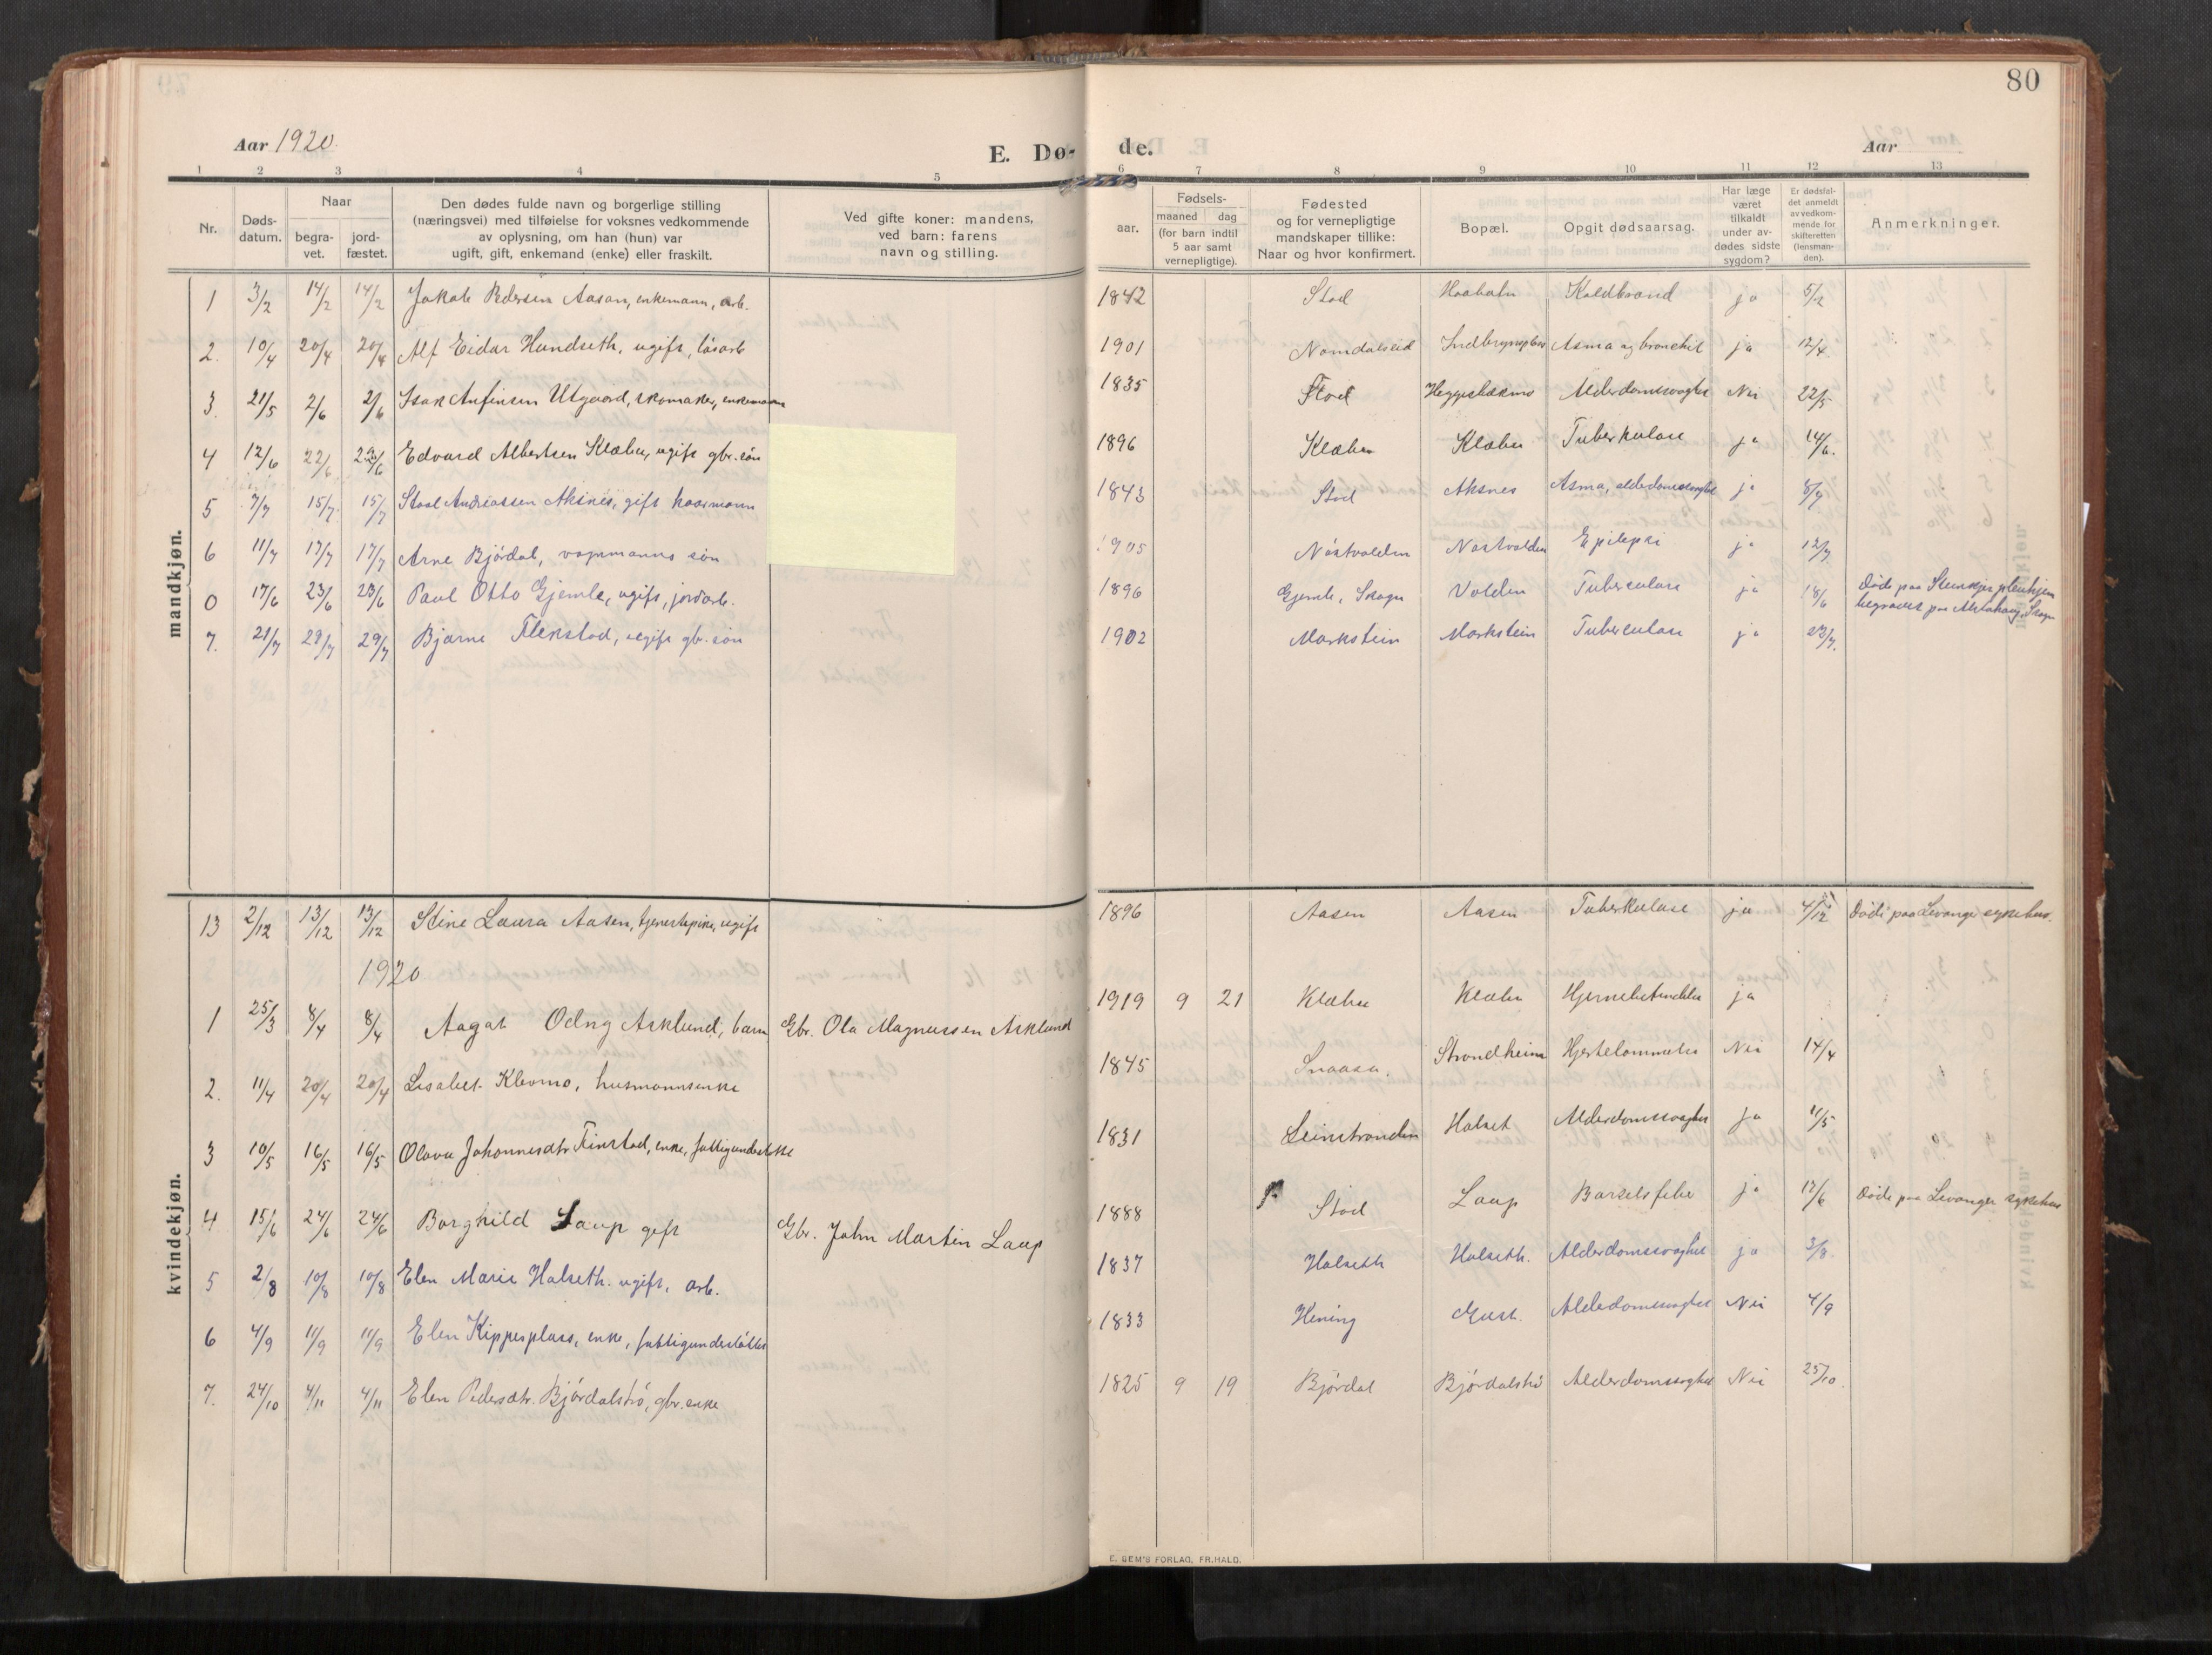 80
Aar 1920.
E. Dø-
de.
Aar
1 2 3 4 5 6 7 8 9 10 11 12 13
Nr.
Døds-
datum.
Naar
begra-
vet.
jord-
fæstet.
Den dødes fulde navn og borgerlige stilling
(næringsvei) med tilføielse for voksnes vedkommende
av oplysning, om han (hun) var
ugift, gift, enkemand (enke) eller fraskilt.
Ved gifte koner: mandens,
ved barn: farens
navn og stilling.
aar.
Fødsels-
maaned dag
(for barn indtil
5 aar samt
vernepligtige).
Fødested
og for vernepligtige
mandskaper tillike:
Naar og hvor konfirmert.
Bopæl.
Opgit dødsaarsag.
Har læge
været
tilkaldt
under av-
dødes sidste
sygdom?
Er dødsfal-
det anmeldt
av vedkom-
mende for
skifteretten
(lensman-
den).
Anmerkninger.
mandkjøn.
1 3/2 14/2 14/2 Jakob Pedersen Aasan, enkemann, arb. 1842 Stod Koldbrand ja 5/2
2. 10/4 20/4 20/4 Alf Eidar Hundseth, ugift, løsarb 1901 Namdalseid Asma og bronchit ja 12/4
3. 21/5 2/6 2/6 Isak Anfinsen Utgaard, skomaker, enkemann 1835 Stod Alderdomssvaghet Nei 22/5
4 12/6 22/6 22/6 Edvard Albertsen Klæbu, ugift gbr. søn 1896 Klæbu Klæbu Tuberkulose ja 14/6.
5 7/7 15/7 15/7 Andreassen Aksnes, gift kaarmann 1843 Stod Aksnes Asma, alderdomssvaghet ja 8/7
6 11/7 17/7 17/7 Arne Bjørdal, vognmanns søn 1905 Nøstvolden Nøstvolden Epilepsi ja 12/7
0 17/6 23/6 23/6 Paul Otto Gjemle, ugift, jordarb. 1896 Gjemle, Skogn Volden Tuberculose ja 18/6 Døde paa Steinkjer pleiehjem
begravet paa Alstahaug, Skogn
7. 21/7 29/7 29/7 Bjarne Flekstad, ugift gbr. søn 1902 Markstein Markstein Tuberculose ja 23/7.
kvindekjøn.
13 2/12 13/12 13/12 Stine Laura Aasen, tjenestepike, ugift 1896 Aasen Aasen Tuberkulose ja 4/12 Døde paa Levanger sykehus.
1920
1 25/3 8/4 8/4 Aagot Odny Asklund, barn Gbr. Ola Magnussen Asklund 1919 9 21 Klæbu Klæbu Hjernebetendelse ja
2. 11/4 20/4 20/4 Lisabet Klevmo, husmannsenke 1845 Snaasa. Strandheim Hjertelammelse Nei 14/4
3 10/5 16/5 16/5 Olava Johannesdtr Finstad, enke, fattigunderst. 1831 Leinstranden Halset Alderdomssvaghet ja 11/5
4 15/6 24/6 24/6 Borghild Laup gift Gbr. John Martin Laup 1888 Stod Laup Barselsfeber ja 17/6 Døde paa Levanger sykehus
5 2/8 10/8 10/8 Elen Marie Halseth. ugift, arb. 1837 Halseth Halseth. Alderdomssvaghet ja 3/8.
6 4/9 11/9 11/9 Elen Kippesplass, enke, fattigunderstøttet 1833 Hening Alderdomssvaghet Nei 4/9
7. 24/10 4/11 4/11 Elen Pedersdtr. Bjørdalstrø, gbr. enke 1825 9 19 Bjørdal Bjørdalstrø Alderdomssvaghet Nei 25/10.
E. SEM'S FORLAG, FR.HALD.